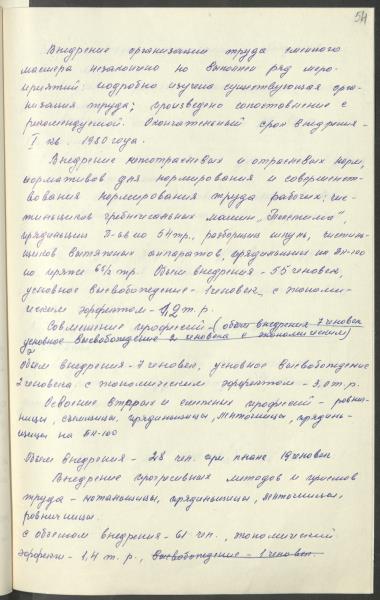 54
Внедрение организации труда сменного
мастера незакончено но выполнен ряд меро-
приятий: подробно изучена существующая орга-
низация труда; произведено сопоставление с
рекомендуемой. Окончательный срок внедрения -
I кв. 1980 года.
Внедрение межотраслевых и отраслевых норм,
нормативов для нормирования и совершенст-
вования нормирования труда рабочих: чис-
тильщиков гребнечесальных машин "Текстима",
прядильщиц П-66 по 54 тр., разборщиц шпуль, чистиль-
щиков вытяжных аппаратов, прядильщиц на БН-100
по пряже тр. Объем внедрения - 55 человек,
условное высвобождение - 1 человек с экономи-
ческим эффектом - 1,2 т.р.
Совмещение профессий - (объем внедрения 7 человек
условное высвобождение 2 человека с экономическим)
объем внедрения - 7 человек, условное высвобождение
2 человека с экономическим эффектом - 3,0 т.р.
Освоение вторых и смежных профессий - ровни-
чницы, съемщицы, прядильщицы, ленточницы, прядиль-
щицы на БН-100
Объем внедрения - 28 чел. при плане 19 человек
Внедрение прогресивных методов и приемов
труда - мотальщицы, прядильщицы, ленточницы,
ровничницы.
с объемом внедрения - 61 чел., экономический
эффект - 1,4 т.р., высвобождение - 1 человек.